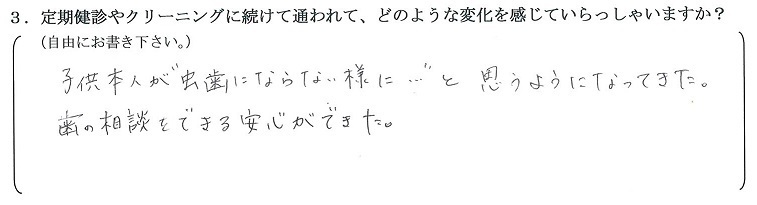 3．定期健診やクリーニングに続けて通われて、どのような変化を感じていらっしゃいますか？
（自由にお書き下さい。）
子供本人が"虫歯にならない様に…"と思うようになってきた。
歯の相談をできる安心ができた。